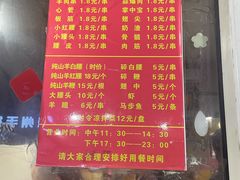 羊肉串 1.8元/串
心管 1.8元/串 掌中宝 1.8元/串
板筋 1.8元/串 翅尖 1.8元/串
小红腰 1.8元/串 奶油 1.8元/串
小腰头 1.8元/串 骨筋 1.8元/串
腰皮 1.8元/串 肉筋 1.8元/串
纯山羊白腰(时价) 碎白腰 5元/串
纯山羊红腰 18元/个 碎红腰 5元/串
纯山羊鞭 15元/根 翅中 5元/个
大腰头 10元/个 虾 5元/个
羊腿 6元/个 马步鱼 5元/条
凉拌菜12元/盘
营业时间:中午11:30——14:30
下午17:30——23:00
请大家合理安排好用餐时间